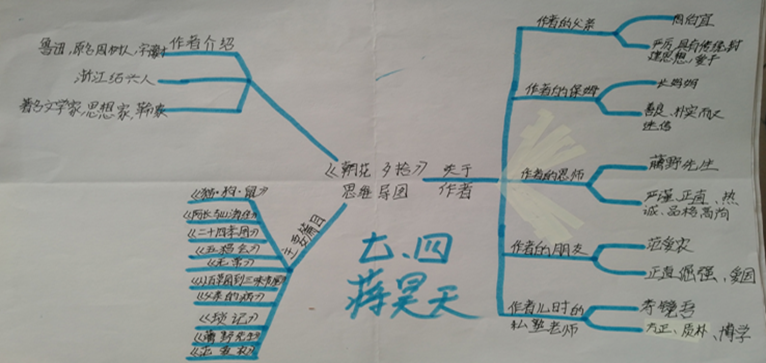 作者介绍
鲁迅,原名周树人,字豫才
浙江绍兴人
著名文学家,思想家,革命家
《朝花夕拾》
思维导图
主要篇目
《猫·狗·鼠》
《阿长与山海经》
《二十四孝图》
《五猖会》
《无常》
《从百草园到三味书屋》
《父亲的病》
《琐记》
《藤野先生》
《范爱农》
关于
作者
作者的父亲
周伯宜
严厉,具有传统封
建思想,爱子
作者的保姆
长妈妈
善良、朴实而又
迷信
作者的恩师
藤野先生
严谨、正直、热
诚、品格高尚
作者的朋友
范爱农
正直倔强、爱国
作者儿时的
私塾老师
寿镜吾
方正、质朴、博学
七.四
蒋昊天